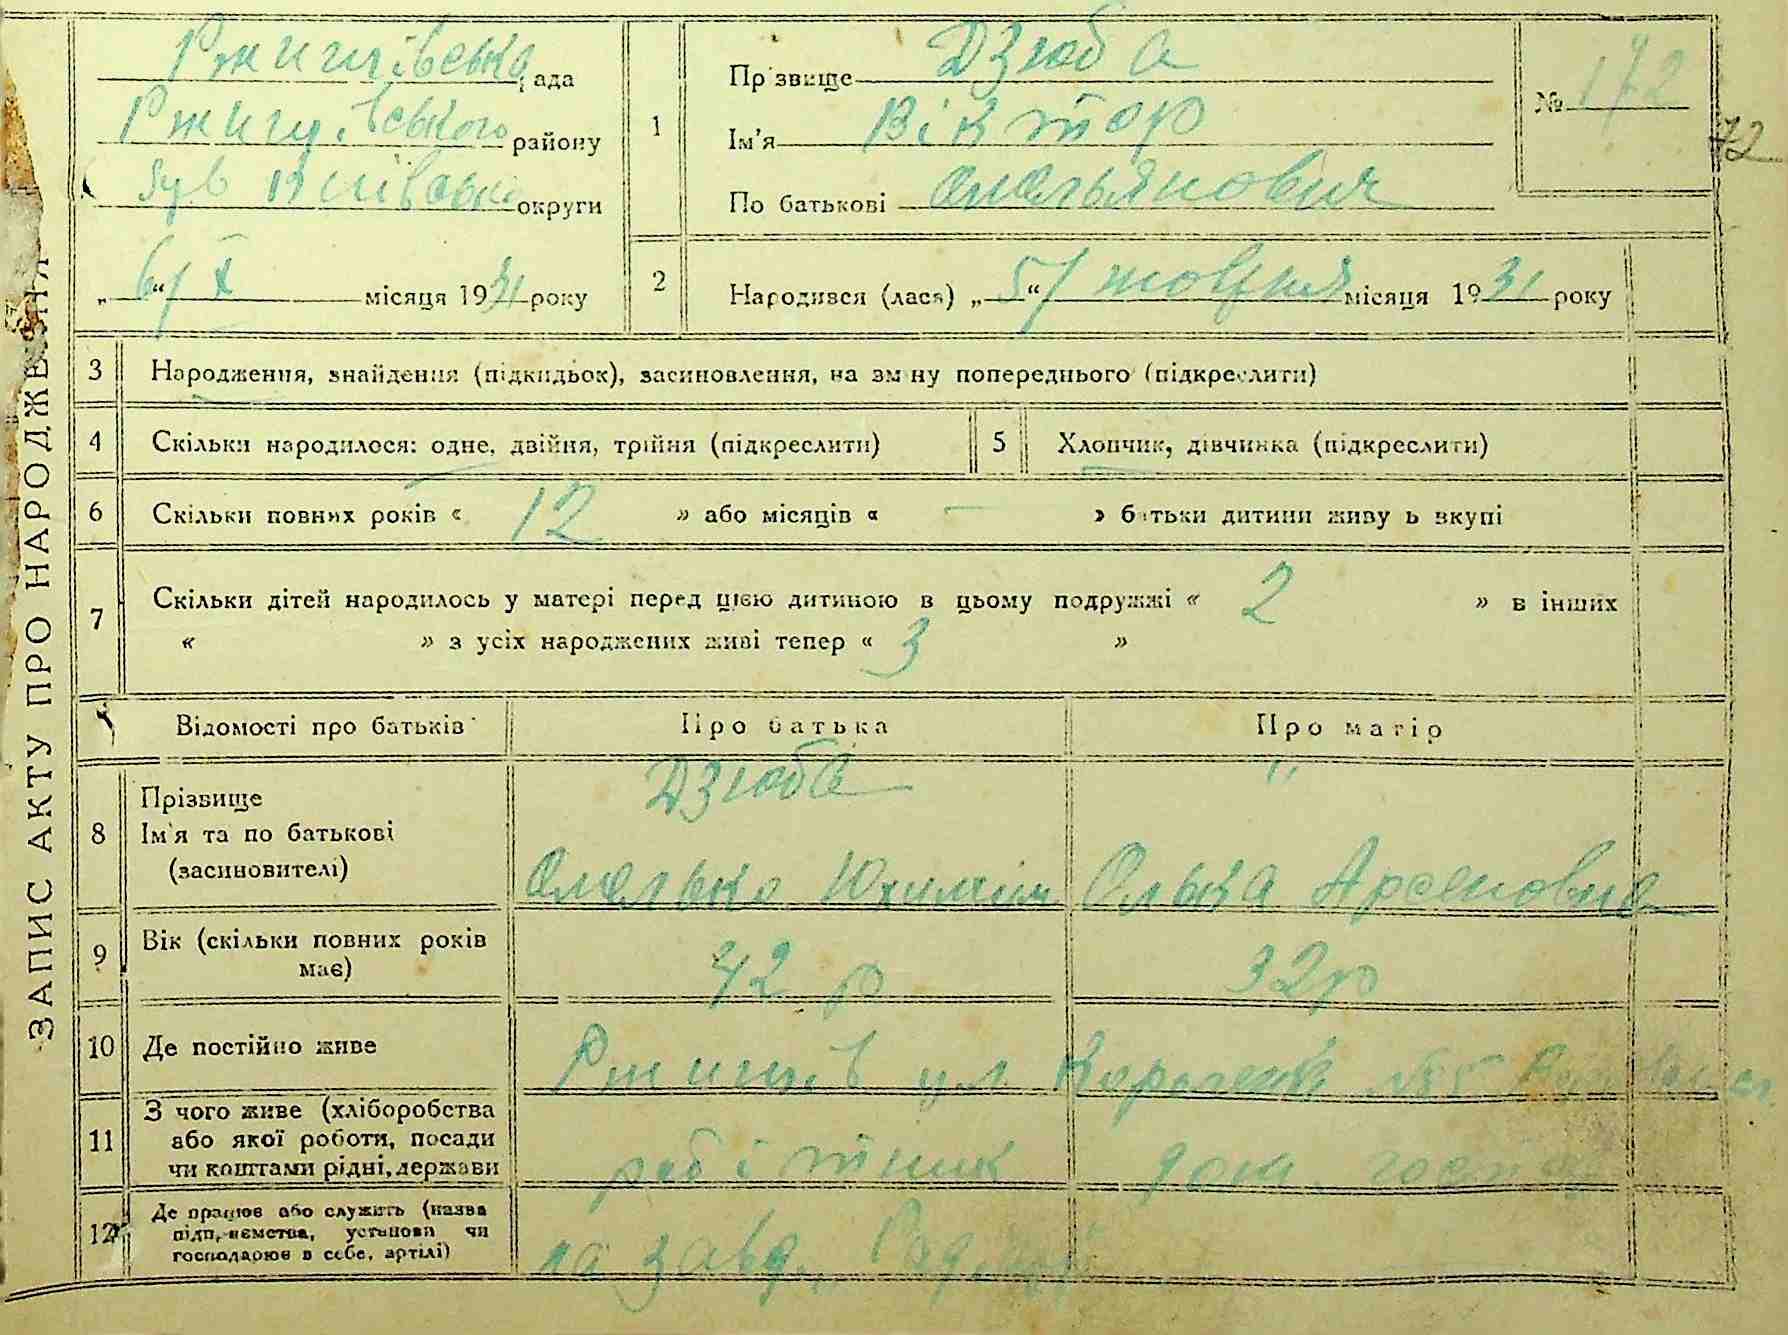 ЗАПИС АКТУ ПРО НАРОДЖЕННЯ
Ржищівська рада
Ржищівського району
округи
„6“ X місяця 1931 року
1
Прізвище Дзюба
Ім'я Віктор
По батькові Омельянович
№ 172
72
2
Народився (лася) „5“ жовтня місяця 1931 року
3 Народження, знайдення (підкидьок), засиновлення, на зміну попереднього (підкреслити)
4 Скільки народилося: одне, двійня, трійня (підкреслити) 5 Хлопчик, дівчинка (підкреслити)
6 Скільки повних років « 12 » або місяців « — » батьки дитини живуть вкупі
7 Скільки дітей народилось у матері перед цією дитиною в цьому подружжі « 2 » в інших
« » з усіх народжених живі тепер « 3 »
Відомості про батьків Про батька Про матір
8 Прізвище Дзюба "
Ім'я та по батькові
(засиновителі) Омелько Юхимов Олька Арсеновна
9 Вік (скільки повних років має) 42 р 32 р
10 Де постійно живе Ржищів ул Короленк № 5
11 З чого живе (хліборобства
або якої роботи, посади
чи коштами рідні, держави робітник дом. госп
12 Де працює або служить (назва
підприємства, установи чи
господарює в себе, артілі) на завд.